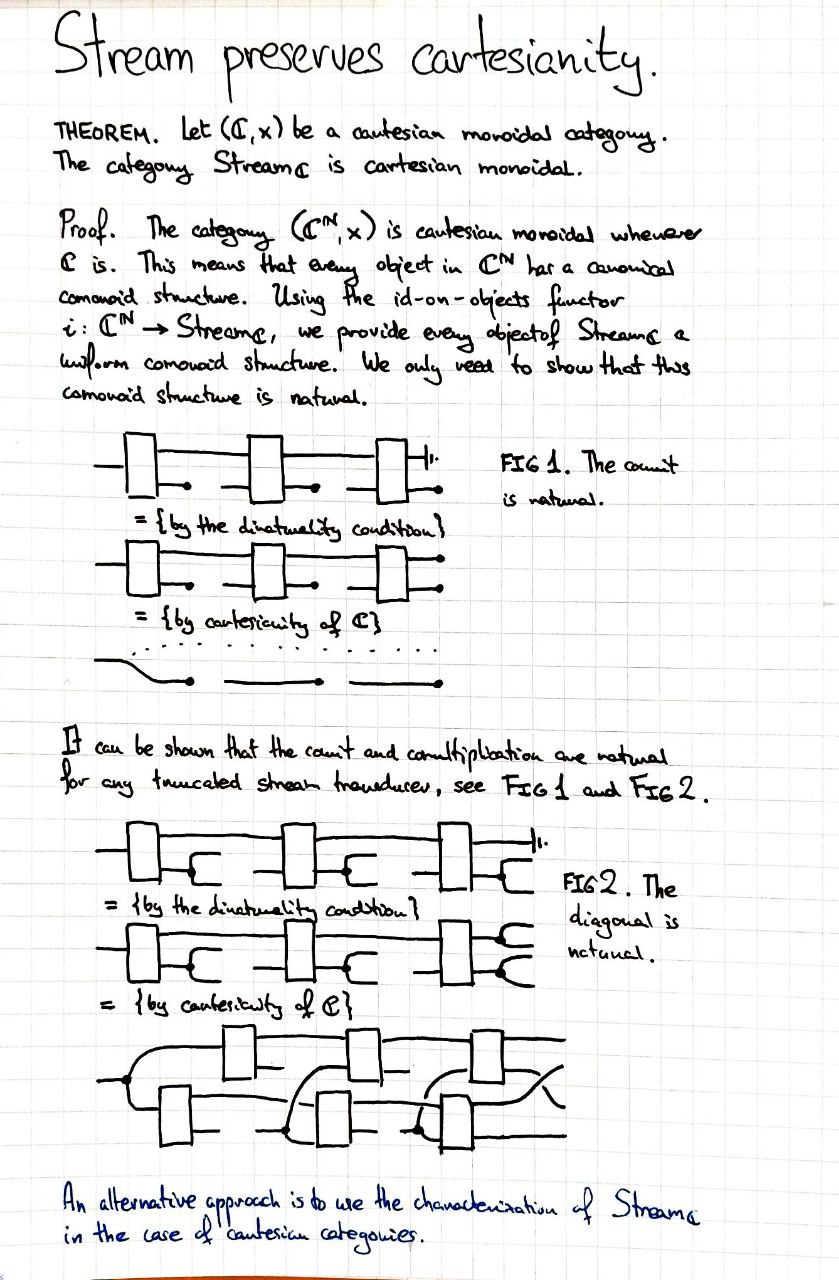 Stream preserves cartesianity.
THEOREM. Let (ℂ,×) be a cartesian monoidal category.
The category Stream_ℂ is cartesian monoidal.
Proof. The category (ℂ^ℕ,×) is cartesian monoidal whenever
ℂ is. This means that every object in ℂ^ℕ has a canonical
comonoid structure. Using the id-on-objects functor
i: ℂ^ℕ → Stream_ℂ, we provide every object of Stream_ℂ a
uniform comonoid structure. We only need to show that this
comonoid structure is natural.
FIG 1. The counit
is natural.
= {by the dinaturality condition}
= {by cartesianity of ℂ}
It can be shown that the counit and comultiplication are natural
for any truncated stream transducer, see FIG 1 and FIG 2.
FIG 2. The
diagonal is
natural.
= {by the dinaturality condition}
= {by cartesianity of ℂ}
An alternative approach is to use the characterization of Stream_ℂ
in the case of cartesian categories.